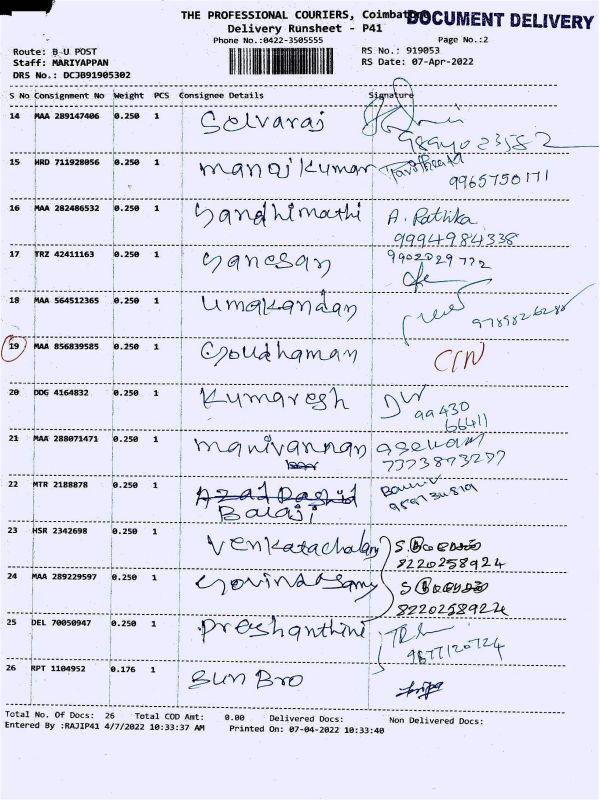 THE PROFESSIONAL COURIERS, Coimbatore
DOCUMENT DELIVERY
Delivery Runsheet - P41
Phone No.:0422-3505555
Page No.:2
Route: B-U POST
RS No.: 919053
Staff: MARIYAPPAN
RS Date: 07-Apr-2022
DRS No.: DCJB91905302
S No Consignment No Weight PCS Consignee Details Signature
14 MAA 289147406 0.250 1 Selvaraj
15 HRD 711928056 0.250 1 manojkumar
9965750171
16 MAA 282486532 0.250 1 Gandhimathi A. Rathika
9994984338
17 TRZ 42411163 0.250 1 Ganesan 9902029772
18 MAA 564512365 0.250 1 Umakandan
19 MAA 856839585 0.250 1 Goudhaman C/N
20 DDG 4164832 0.250 1 Kumaresh
99430
66411
21 MAA 288071471 0.250 1 manivannan
22 MTR 2188878 0.250 1 Azad Rashid
Balaji
23 HSR 2342698 0.250 1 Venkatachalam
8220258924
24 MAA 289229597 0.250 1 Govindasamy
8220258924
25 DEL 70050947 0.250 1 Preshanthini
9877120724
26 RPT 1104952 0.176 1 Sun Bro
Total No. Of Docs: 26 Total COD Amt: 0.00 Delivered Docs: Non Delivered Docs:
Entered By :RAJIP41 4/7/2022 10:33:37 AM Printed On: 07-04-2022 10:33:40